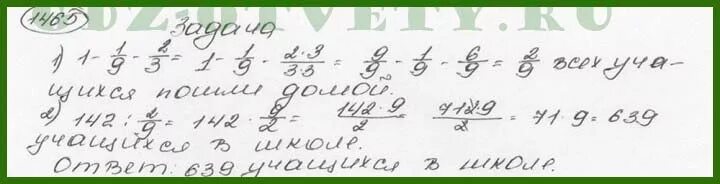 OTVETY.RU
1465 Задача
1) 1 - 1/9 - 2/3 = 1 - 1/9 - 2·3/3·3 = 9/9 - 1/9 - 6/9 = 2/9 всех уча-
щихся пошли домой.
2) 142 : 2/9 = 142 · 9/2 = 142·9/2 = 712·9/2 = 71·9 = 639
учащихся в школе.
Ответ: 639 учащихся в школе.